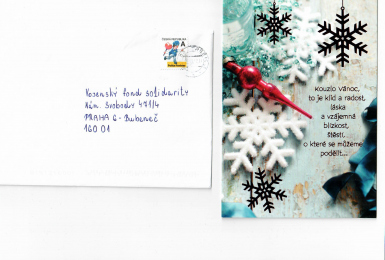 A
Vojenský fond solidarity
Nám. Svobody 471/4
PRAHA 6 - Bubeneč
160 01
Kouzlo Vánoc,
to je klid a radost,
láska
a vzájemná
blízkost,
štěstí,
o které se můžeme
podělit...